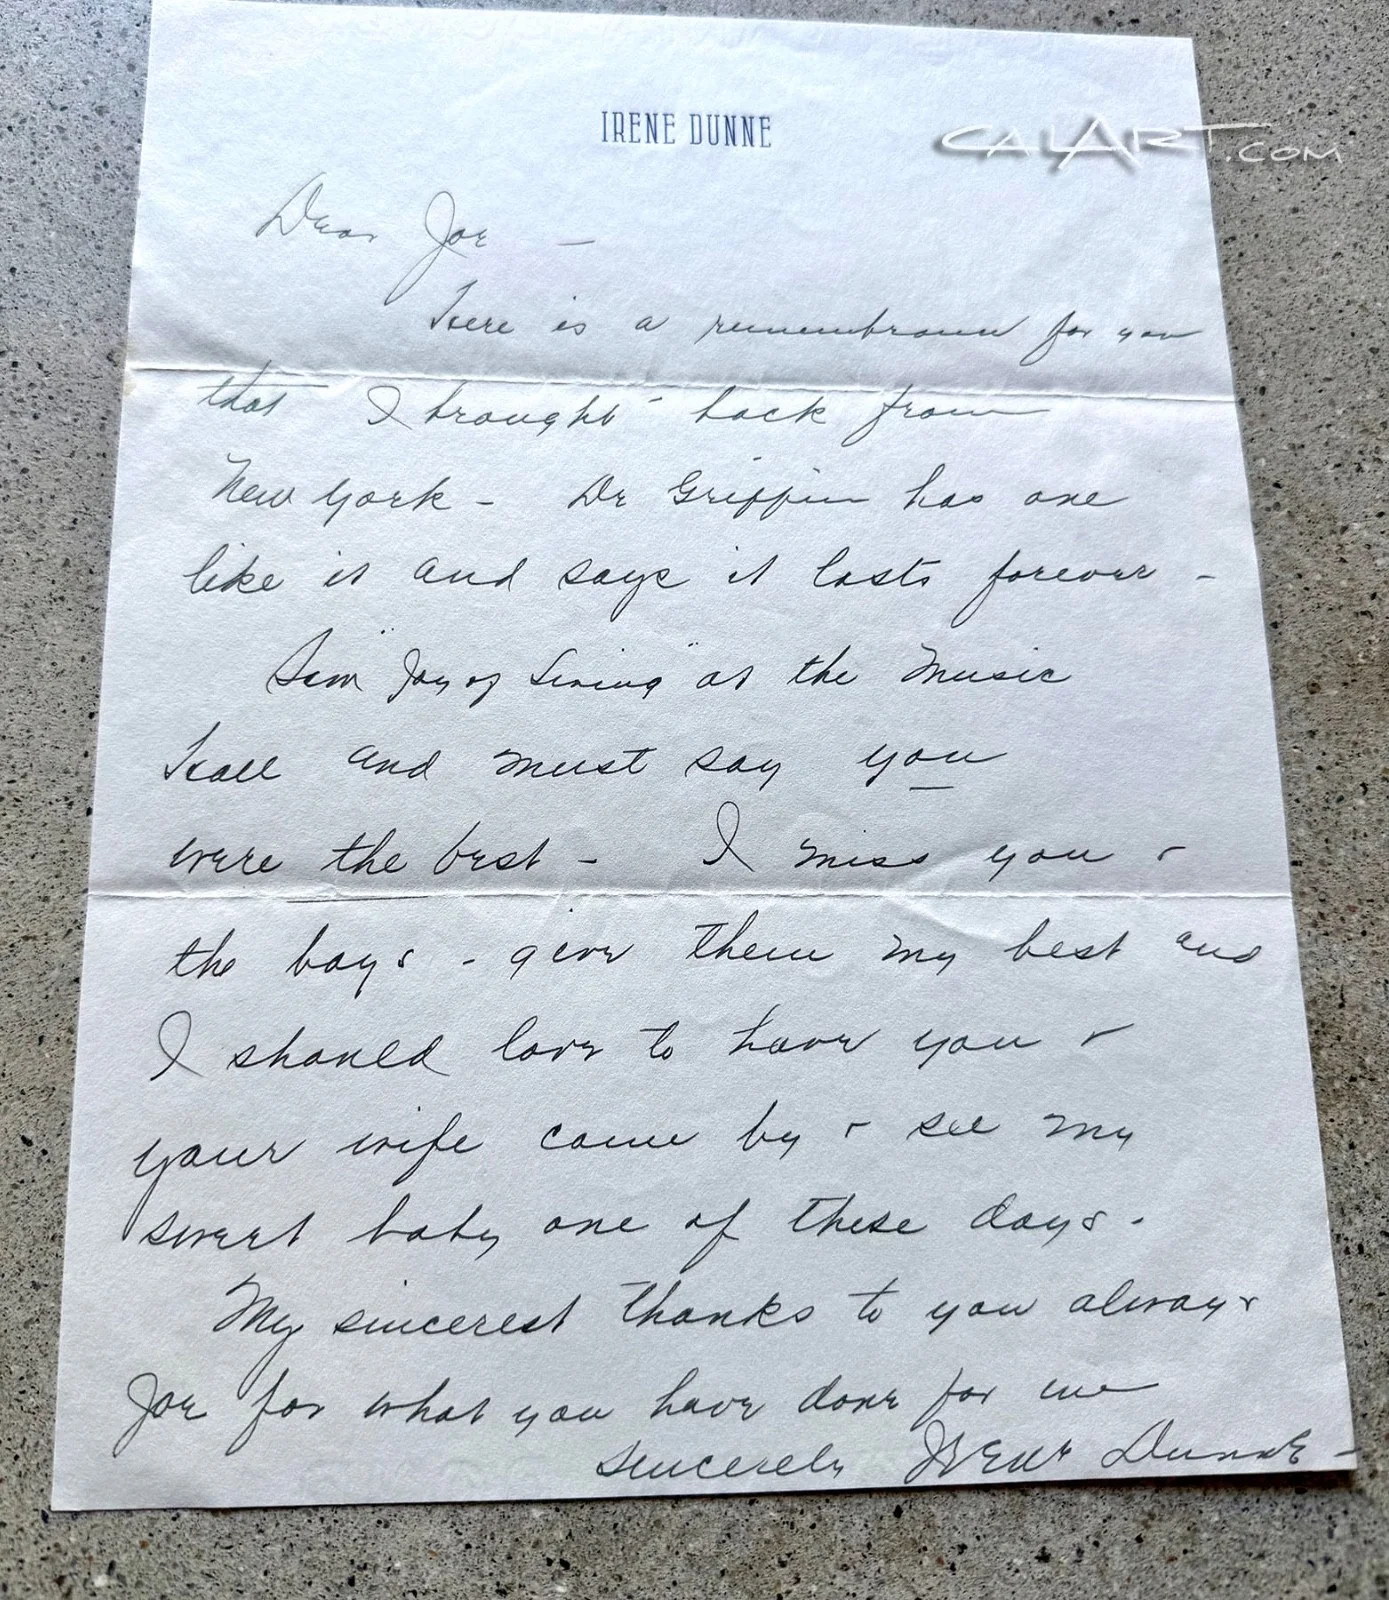 IRENE DUNNE
CALART.COM
Dear Joe —
Here is a remembrance for you
that I brought back from
New York - Dr Griffin has one
like it and says it lasts forever -
Saw "Joy of Living" at the Music
Hall and must say you
were the best - I miss you &
the boys - give them my best and
I should love to have you &
your wife come by & see my
sweet baby one of these days.
My sincerest thanks to you always
Joe for what you have done for me
Sincerely Irene Dunne -